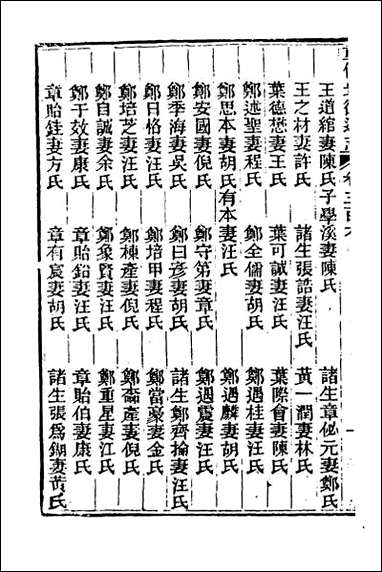 王道綰妻陳氏子學溪妻陳氏 諸生章佖元妻鄭氏
王之材妻許氏 諸生張誥妻汪氏 黃一潤妻林氏
葉德懋妻王氏 葉可誠妻汪氏 葉際會妻陳氏
鄭述聖妻程氏 鄭全儒妻胡氏 鄭遇桂妻汪氏
鄭思本妻胡氏有本妻汪氏 鄭遇麟妻胡氏
鄭安國妻倪氏 鄭守第妻章氏 鄭遇震妻汪氏
鄭季海妻吳氏 鄭曰彥妻胡氏 諸生鄭齊掄妻汪氏
鄭日恪妻汪氏 鄭培甲妻程氏 鄭當豪妻金氏
鄭培芝妻汪氏 鄭棟產妻倪氏 鄭產妻倪氏
鄭自誠妻余氏 鄭象賢妻汪氏 鄭重星妻江氏
鄭于效妻康氏 章貽鉛妻汪氏 章貽伯妻康氏
章貽銈妻方氏 章有妻胡氏 諸生張為錫妻黃氏